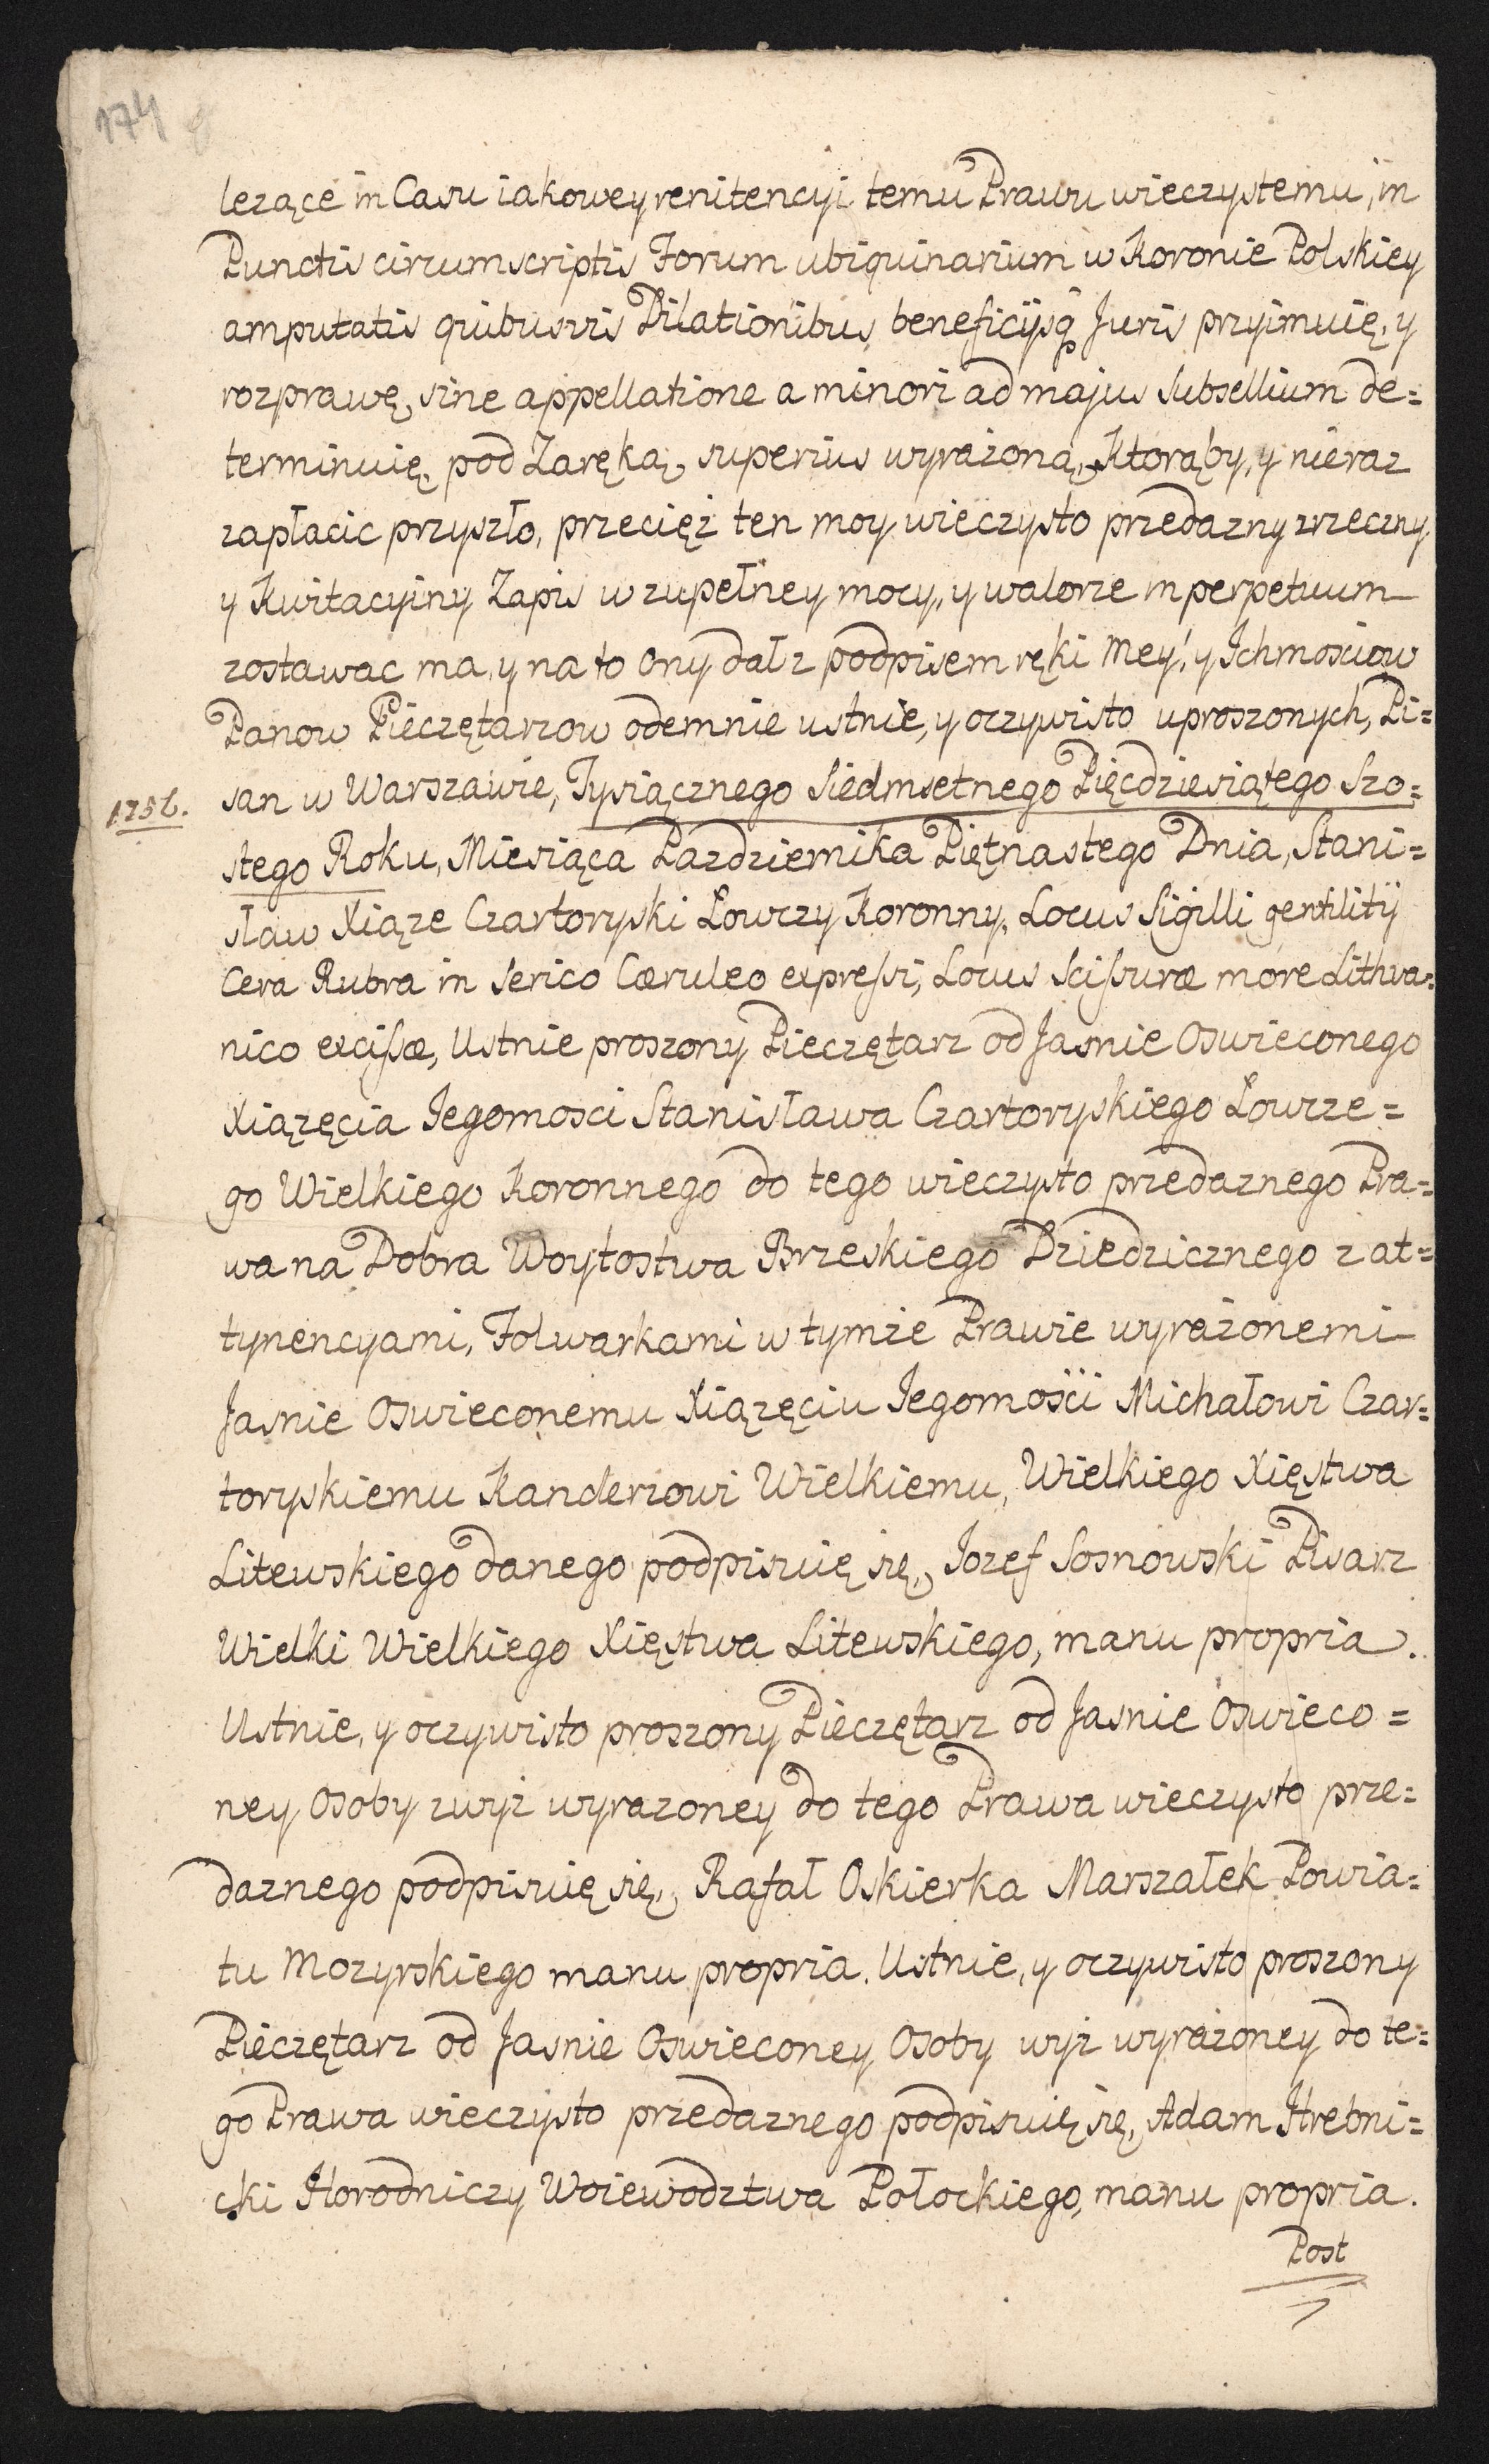 174
lezące in Casu iakowey renitencyi temu Prawu wieczystemu, in
Punctis circumscriptis Forum ubiquinarium w Koronie Polskiey
amputatis quibusvis Dilationibus, beneficijsq Juris przyimuię, y
rozprawę, sine appellatione a minori ad majus Subsellium de=
terminuię, pod Zaręką, superius wyrażoną, Ktorąby, y nieraz
zapłacic przyszło, przecięż ten moy wieczysto przedazny zrzeczny
y Kwitacyiny Zapis w zupełney mocy, y walorze in perpetuum
zostawac ma, y na to Ony dał z podpisem ręki Mey, y Ichmosciow
Panow Pieczętarzow odemnie ustnie, y oczywisto uproszonych, Pi=
1756.
san w Warszawie, Tysiącznego Siedmsetnego Pięcdziesiątego Szo=
stego Roku, Miesiąca Pazdziernika Piętnastego Dnia, Stani=
sław Xiąze Czartoryski Łowczy Koronny, Locus Sigilli gentilitÿ
Cera Rubra in Serico Cæruleo expressi, Locus Scissuræ more Lithva=
nico excissæ, Ustnie proszony Pieczętarz od Jasnie Oswieconego
Xiązęcia Jegomosci Stanisława Czartoryskiego Łowcze=
go Wielkiego Koronnego do tego wieczysto przedaznego Pra=
wa na Dobra Woytostwa Brzeskiego Dziedzicznego z at=
tynencyami, Folwarkami w tymże Prawie wyrażonemi
Jasnie Oswieconemu Xiązęciu Jegomości Michałowi Czar=
toryskiemu Kanclerzowi Wielkiemu, Wielkiego Xięstwa
Litewskiego danego podpisuię się, Jozef Sosnowski Pisarz
Wielki Wielkiego Xięstwa Litewskiego, manu propria.
Ustnie, y oczywisto proszony Pieczętarz od Jasnie Oswieco=
ney Osoby zwyż wyrazoney do tego Prawa wieczysto prze=
daznego podpisuię się, Rafał Oskierka Marszałek Powia=
tu Mozyrskiego manu propria. Ustnie, y oczywisto proszony
Pieczętarz od Jasnie Oswieconey Osoby wyż wyrażoney do te=
go Prawa wieczysto przedaznego podpisuię się, Adam Hrebni=
cki Horodniczy Woiewodztwa Połockiego, manu propria.
Post